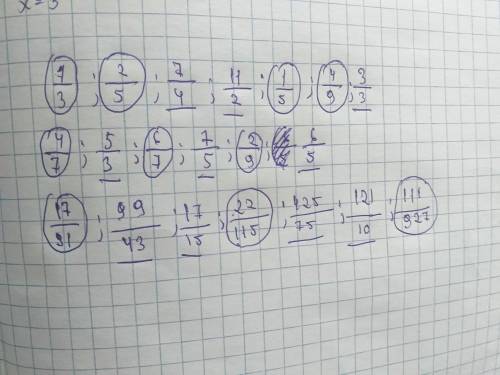 1/3 ; 2/5 ; 7/4 ; 11/2 ; 1/5 ; 4/9 ; 3/3
4/7 ; 5/3 ; 6/7 ; 7/5 ; 2/9 ; 6/5
17/91 ; 99/43 ; 17/15 ; 22/115 ; 125/75 ; 121/10 ; 111/927